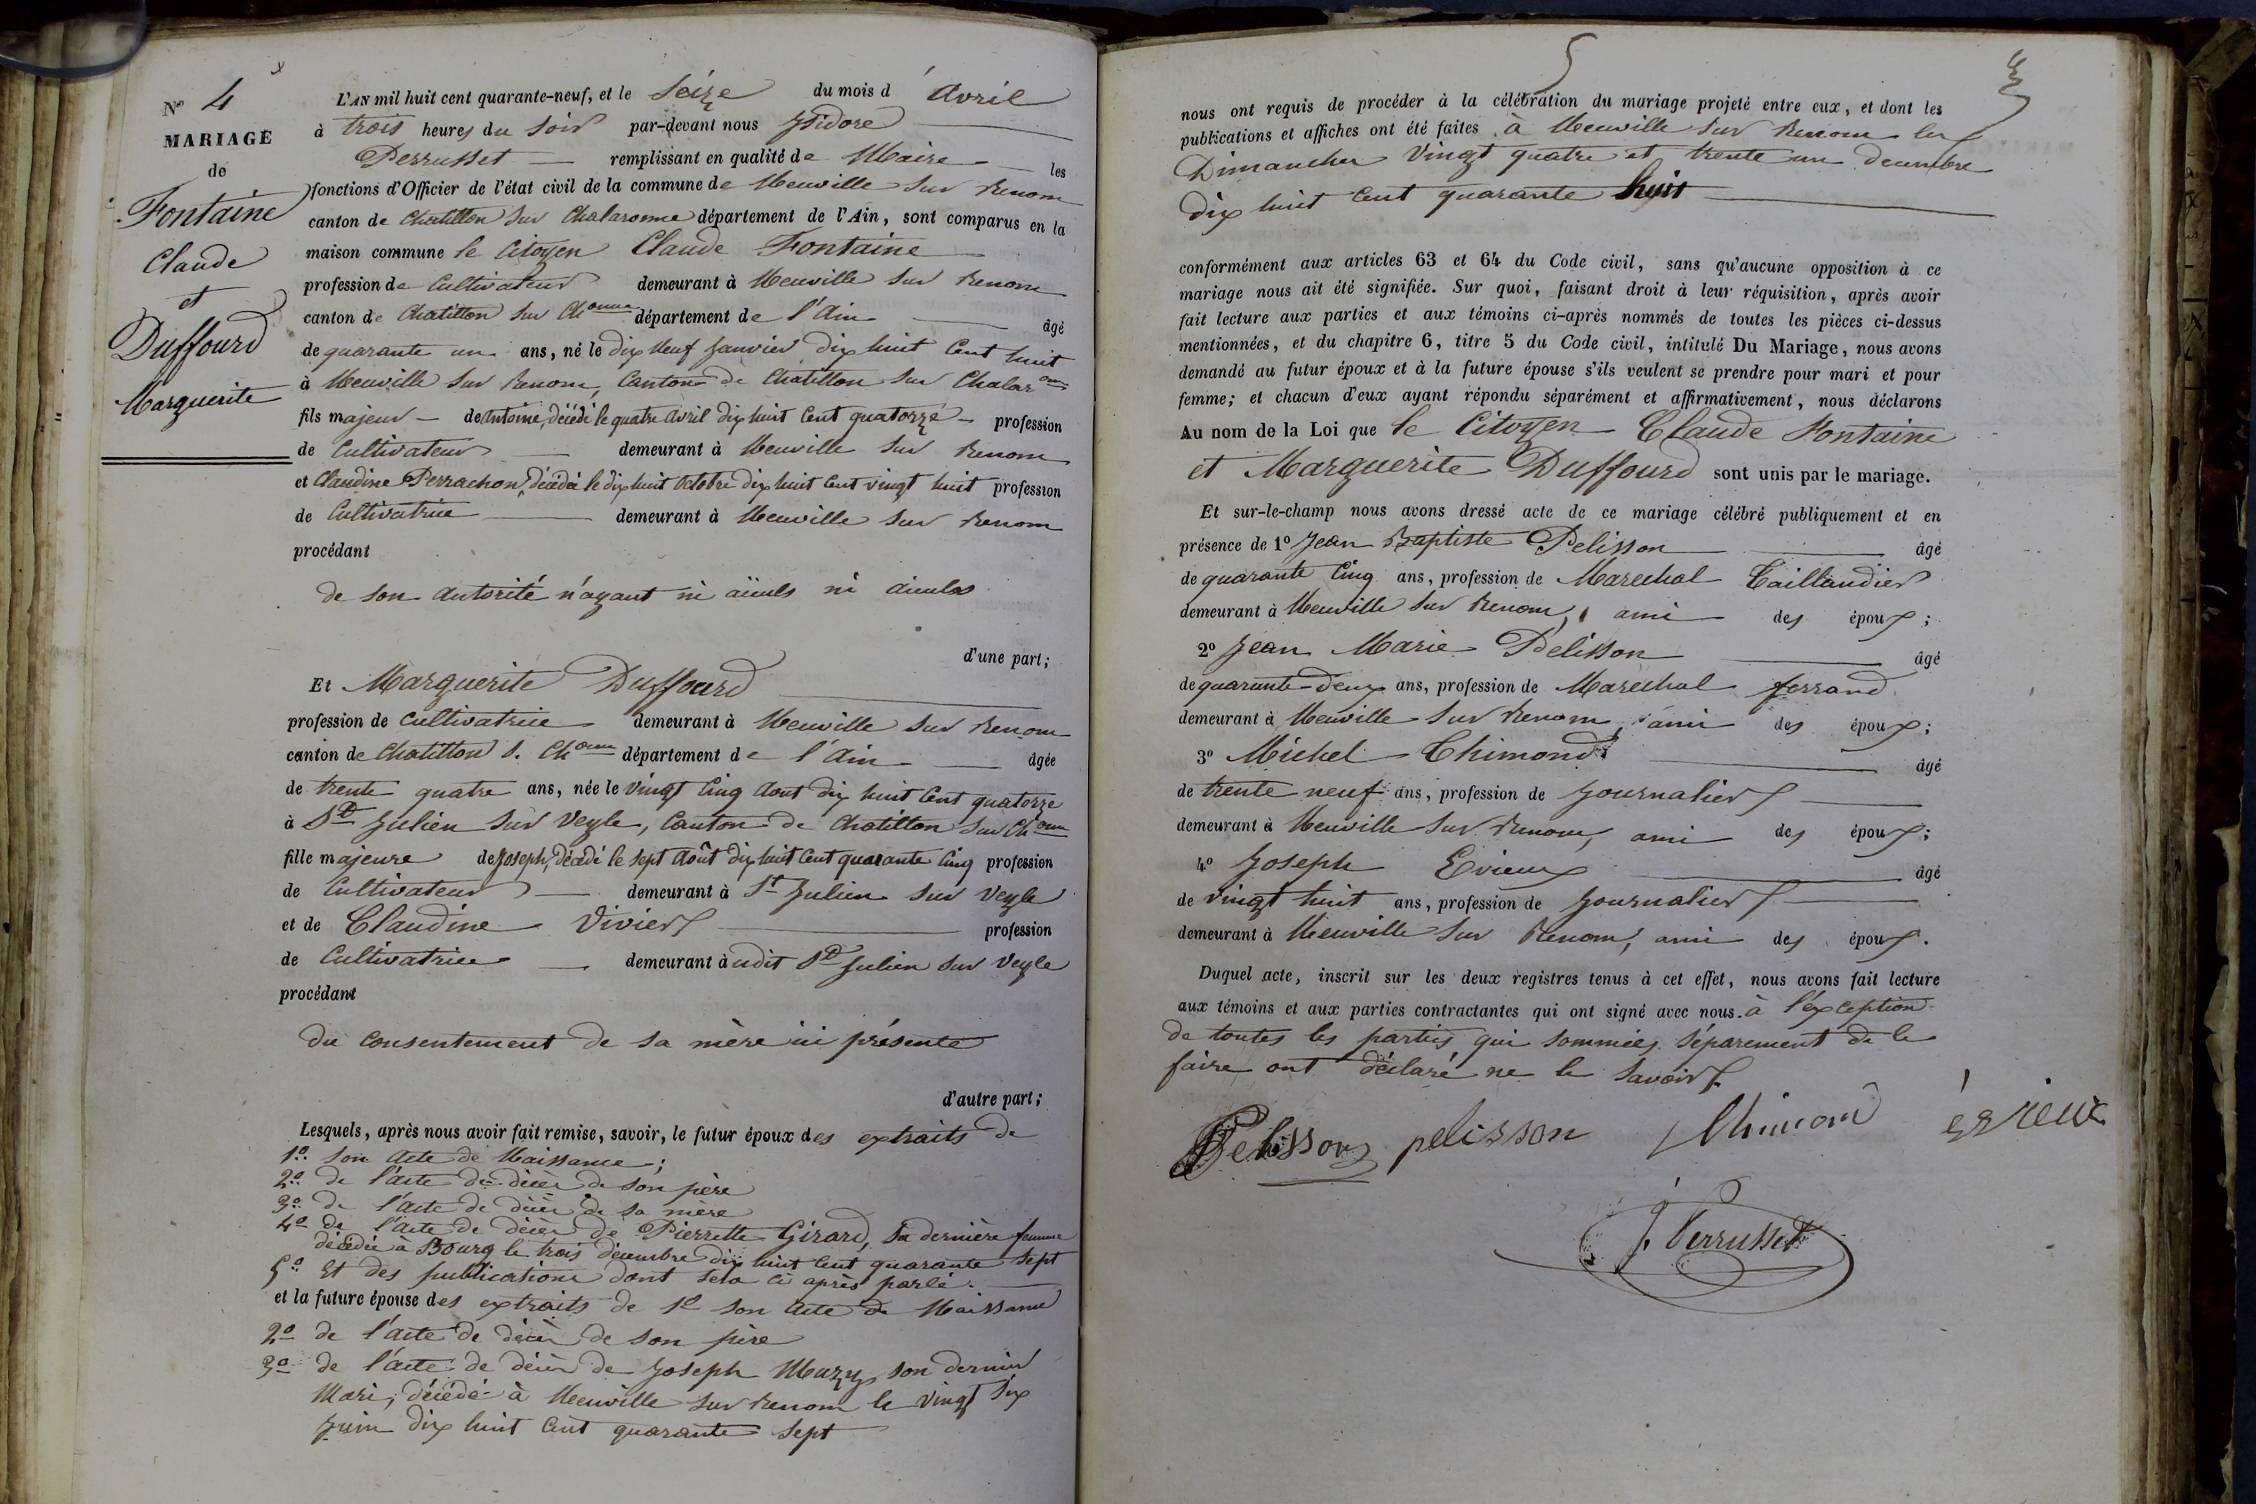 N° 4
MARIAGE
de
Fontaine
Claude
et
Duffourd
Marguerite
L'AN mil huit cent quarante-neuf, et le Seize du mois d'Avril
à trois heures du soir par-devant nous Isidore
Perrusset remplissant en qualité de Maire les
fonctions d'Officier de l'état civil de la commune de Neuville sur Renom
canton de Chatillon sur Chalaronne département de l'Ain, sont comparus en la
maison commune le Citoyen Claude Fontaine
profession de Cultivateur demeurant à Neuville sur Renom
canton de Chatillon sur Chonne département de l'Ain âgé
de quarante un ans, né le dix neuf Janvier dix huit Cent huit
à Neuville sur Renom, Canton de Chatillon sur Chalaronne
fils majeur de Antoine, décédé le quatre avril dix huit Cent quatorze profession
de Cultivateur demeurant à Neuville sur Renom
et Claudine Perrachon, décédée le dix huit Octobre dix huit Cent vingt huit profession
de Cultivatrice demeurant à Neuville sur Renom
procédant
de son autorité n'ayant ni aïeuls ni aieules
d'une part;
Et Marguerite Duffourd
profession de cultivatrice demeurant à Neuville sur Renom
canton de Chatillon s. Chonne département de l'Ain âgée
de trente quatre ans, née le vingt Cinq Aout dix huit Cent quatorze
à St Julien sur Veyle, Canton de Chatillon sur Chonne
fille majeure de Joseph, décédé le sept Août dix huit Cent quarante Cinq profession
de Cultivateur demeurant à St Julien sur Veyle
et de Claudine Vivier profession
de Cultivatrice demeurant à udit St Julien sur Veyle
procédant
du consentement de sa mère ici présente
d'autre part;
Lesquels, après nous avoir fait remise, savoir, le futur époux des extraits de
1° son acte de Naissance;
2° de l'acte de décès de son père
3° de l'acte de décès de sa mère
4° de l'acte de décès de Pierrette Girard, sa dernière femme
décédée à Bourg le trois décembre dix huit Cent quarante sept
5° Et des publications dont sera ci après parlé.
et la future épouse des extraits de 1° son acte de Naissance
2° de l'acte de décès de son père
3° de l'acte de décès de Joseph Mazuy son dernier
Mari, décédé à Neuville sur Renom le vingt six
Juin dix huit Cent quarante sept
nous ont requis de procéder à la célébration du mariage projeté entre eux, et dont les
publications et affiches ont été faites à Neuville sur Renom les
Dimanches vingt quatre et trente un decembre
dix huit Cent quarante huit
conformément aux articles 63 et 64 du Code civil, sans qu'aucune opposition à ce
mariage nous ait été signifiée. Sur quoi, faisant droit à leur réquisition, après avoir
fait lecture aux parties et aux témoins ci-après nommés de toutes les pièces ci-dessus
mentionnées, et du chapitre 6, titre 5 du Code civil, intitulé Du Mariage, nous avons
demandé au futur époux et à la future épouse s'ils veulent se prendre pour mari et pour
femme; et chacun d'eux ayant répondu séparément et affirmativement, nous déclarons
Au nom de la Loi que le Citoyen Claude Fontaine
et Marguerite Duffourd sont unis par le mariage.
Et sur-le-champ nous avons dressé acte de ce mariage célébré publiquement et en
présence de 1° Jean Baptiste Pelisson âgé
de quarante Cinq ans, profession de Marechal Taillandier
demeurant à Neuville sur Renom, ami des époux;
2° Jean Marie Pelisson âgé
de quarante deux ans, profession de Maréchal ferrand
demeurant à Neuville sur Renom, ami des époux;
3° Michel Thimond âgé
de trente neuf ans, profession de Journalier
demeurant à Neuville sur Renom, ami des époux;
4° Joseph Evieux âgé
de vingt huit ans, profession de Journalier
demeurant à Neuville sur Renom, ami des époux.
Duquel acte, inscrit sur les deux registres tenus à cet effet, nous avons fait lecture
aux témoins et aux parties contractantes qui ont signé avec nous. à l'exception
de toutes les parties qui sommées séparement de le
faire ont déclaré ne le savoir.
Pelisson pelisson thimond
J. Perrusset